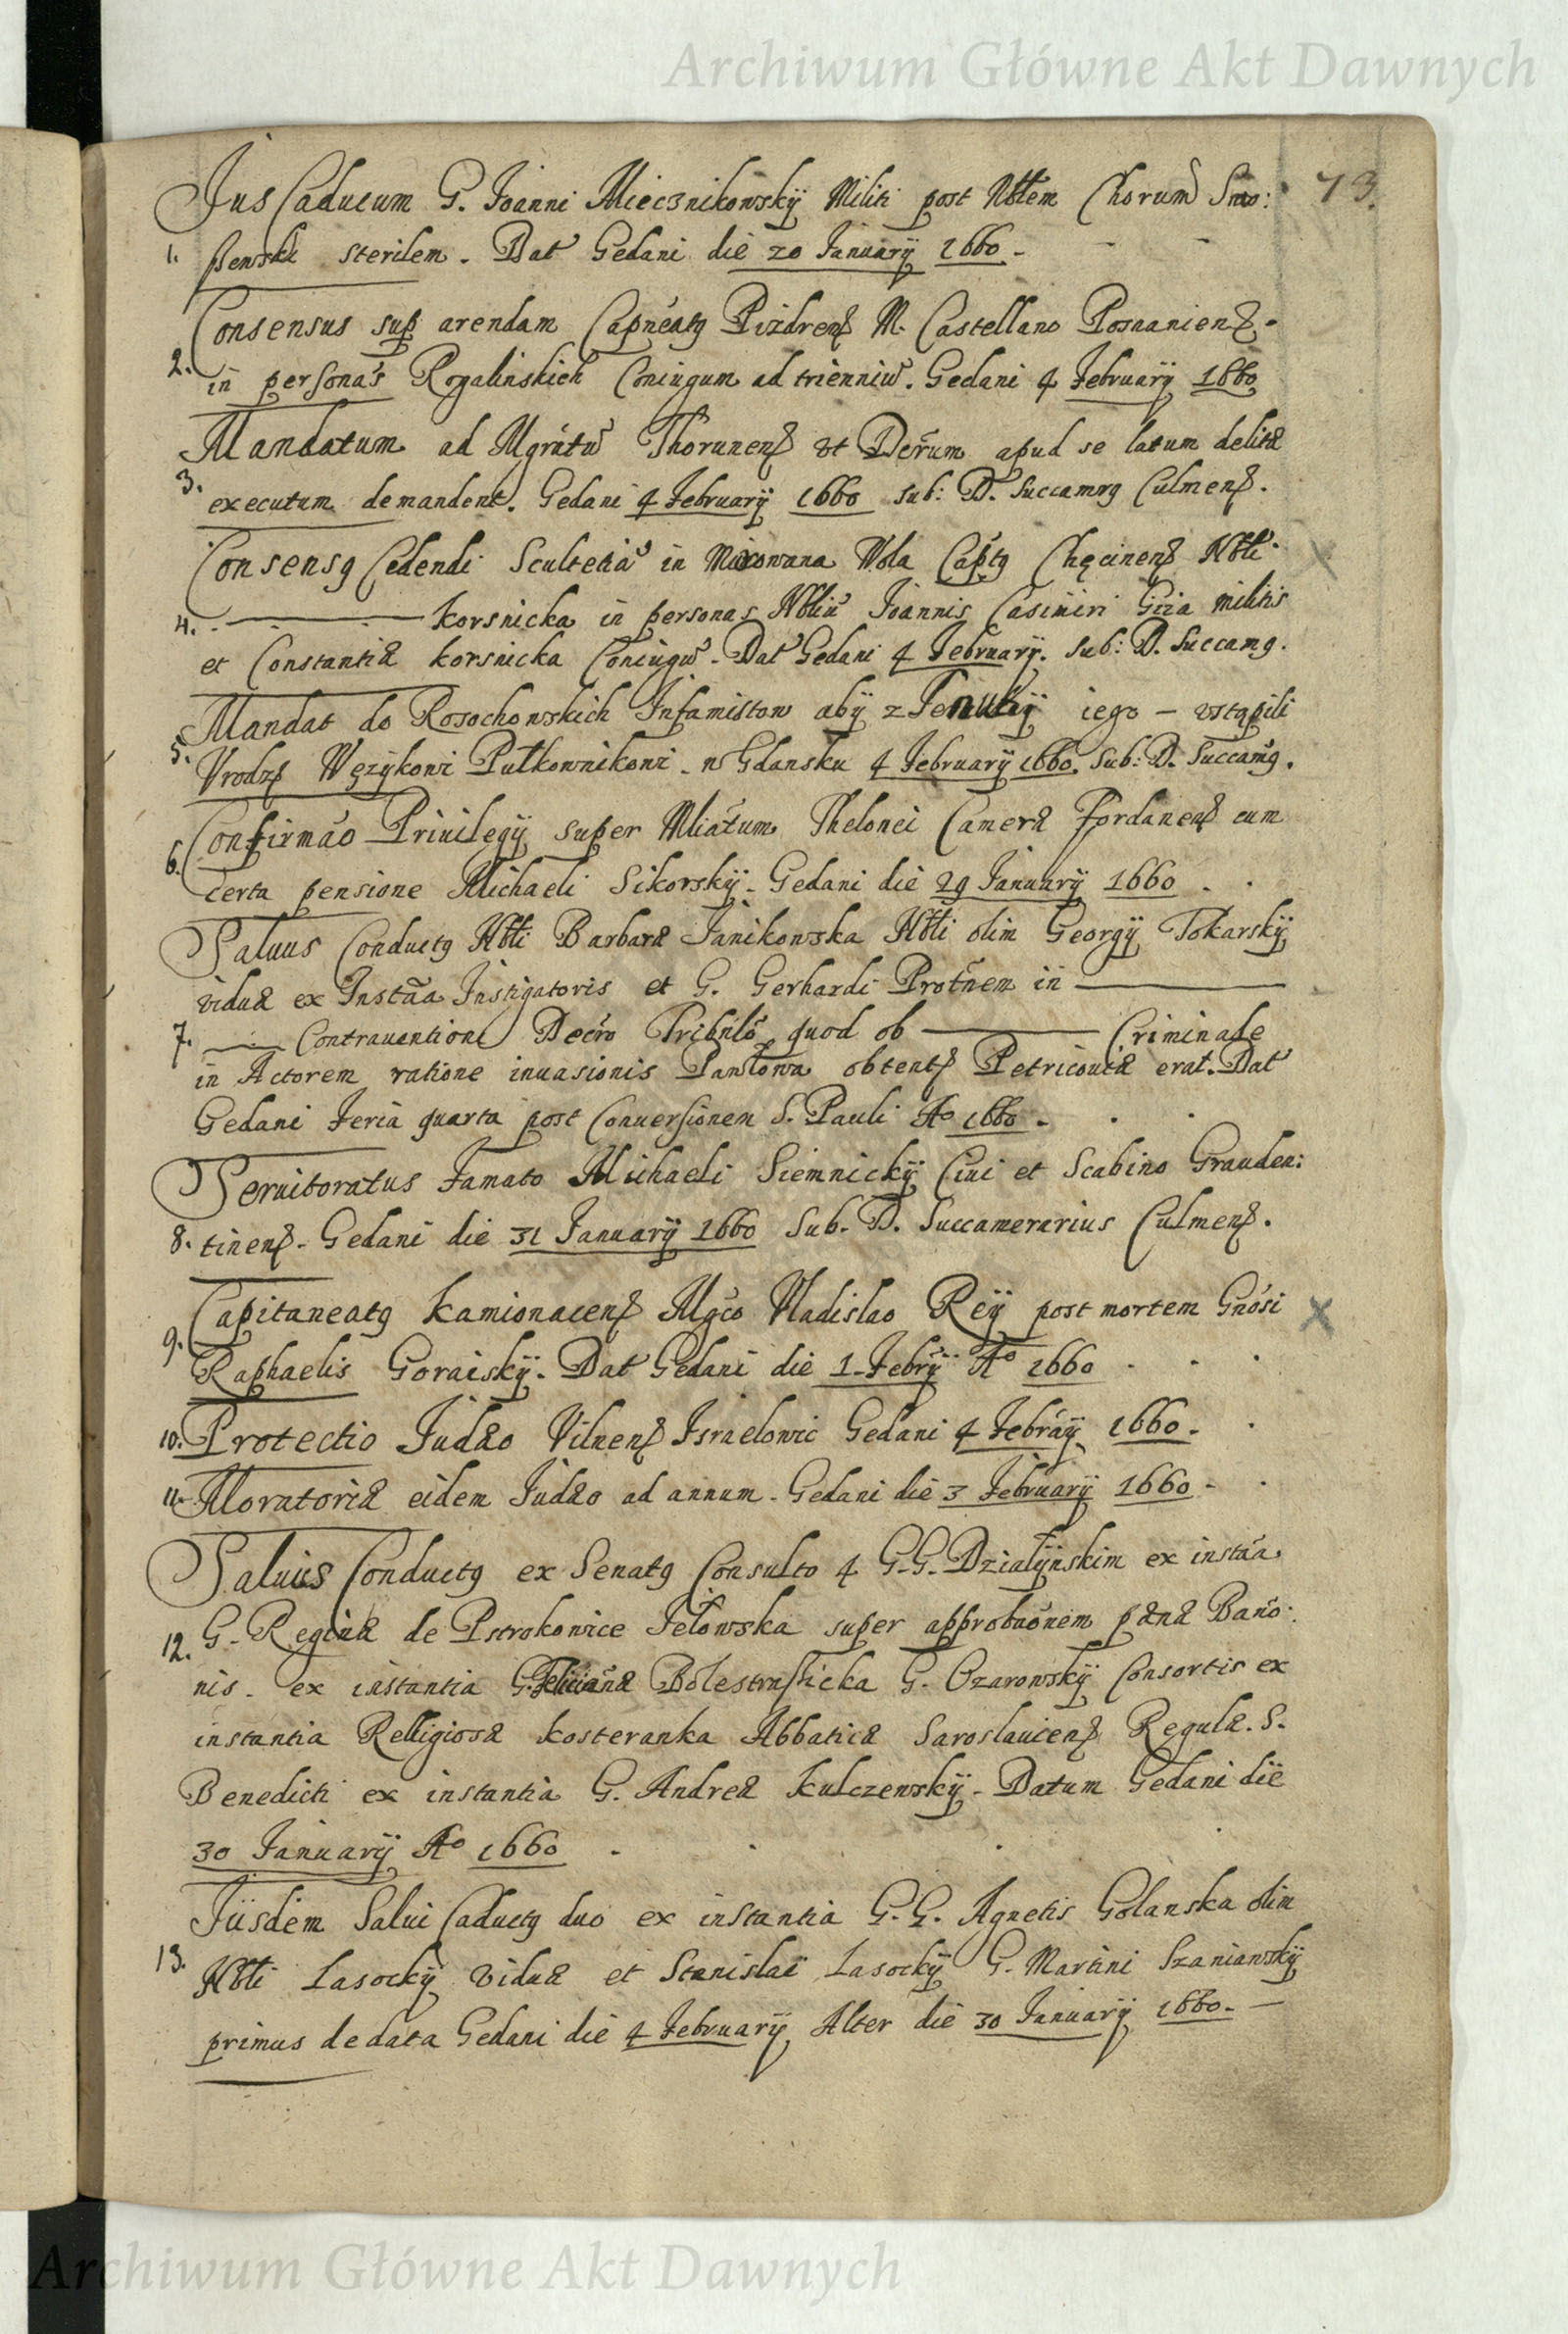 Archiwum Główne Akt Dawnych
73.
Jus Caducum G. Joanni Miecznikowskÿ Militi post Nbłem Chorum Smo:
1. szewski sterilem. Dat Gedani die 20 Januarÿ 1660
Consensus sup arendam Capneatg Pizdrens M. Castellano Posnaniens.
2. in personas Rogalinskich Coniugum ad trienniu. Gedani 4 Februarÿ 1660
Mandatum ad Mgratu Thorunens vt Decrum apud se latum debitæ
3. executum demandent. Gedani 4 Februarÿ 1660 sub: D. Succamrg Culmens.
Consensg Cedendi Scultetia in Mixowana Wola Captg Chęcinens Nbłi
4. korsnicka in personas Nbliu Joannis Casimiri Giza militis
et Constantiæ korsnicka Coniugu. Dat Gedani 4 Februarÿ. sub: D. Succamg.
Mandat do Rosochowskich Infamistow abÿ z Tenutÿ iego – vstąpili
5. Vrodzs Wężykowi Pułkownikowi. w Gdansku 4 Februarÿ 1660. Sub: D. Succamg.
Confirmao Priuilegÿ super Mliatum Thelonei Cameræ Fordanens cum
6. certa pensione Michaeli Sikorskÿ. Gedani die 29 Januarÿ 1660
Saluus Conductg Nbłi Barbaræ Janikowska Nbłi olim Georgÿ Tokarskÿ
viduæ ex Instãa Instigatoris et G. Gerhardi Protnem in
7. Contrauentione Decro Tribnlo quod ob Criminale
in Actorem ratione inuasionis Pawłowa obtents Petricouiæ erat. Dat
Gedani Feria quarta post Conuersionem S. Pauli Ao 1660.
Seruitoratus Famato Michaeli Siemnickÿ Ciui et Scabino Grauden:
8. tinens. Gedani die 31 Januarÿ 1660 Sub. D. Succamerarius Culmens.
Capitaneatg kamionacens Mgco Vladislao Reÿ post mortem Gnosi
9. Raphaelis Goraiskÿ. Dat Gedani die 1. Febrÿ Ao 1660
10. Protectio Judæo Vilnens Israelowic Gedani 4 Febraÿ 1660.
11. Moratoriæ eidem Judæo ad annum. Gedani die 3 Februarÿ 1660
Saluus Conductg ex Senatg Consulto 4 G.G. Dzialÿnskim ex instãa
12. G. Reginæ de Pstrokonice Jełowska super approbaonem pænæ Bano:
nis. ex instantia G. Felicianæ Bolestraszicka G. Ozarowskÿ Consortis ex
instantia Relligiosæ kosteranka Abbatiæ Jaroslauiens Regulæ. S.
Benedicti ex instantia G. Andreæ kulczewskÿ. Datum Gedani die
30 Januarÿ Ao 1660
Iisdem Salui Caductg duo ex instantia G.G. Agnetis Golanska olim
13. Nbłi Lasockÿ viduæ et Stanislai Lasockÿ G. Martini Szaniawskÿ
primus de data Gedani die 4 Februarÿ Alter die 30 Januarÿ 1660.
Archiwum Główne Akt Dawnych